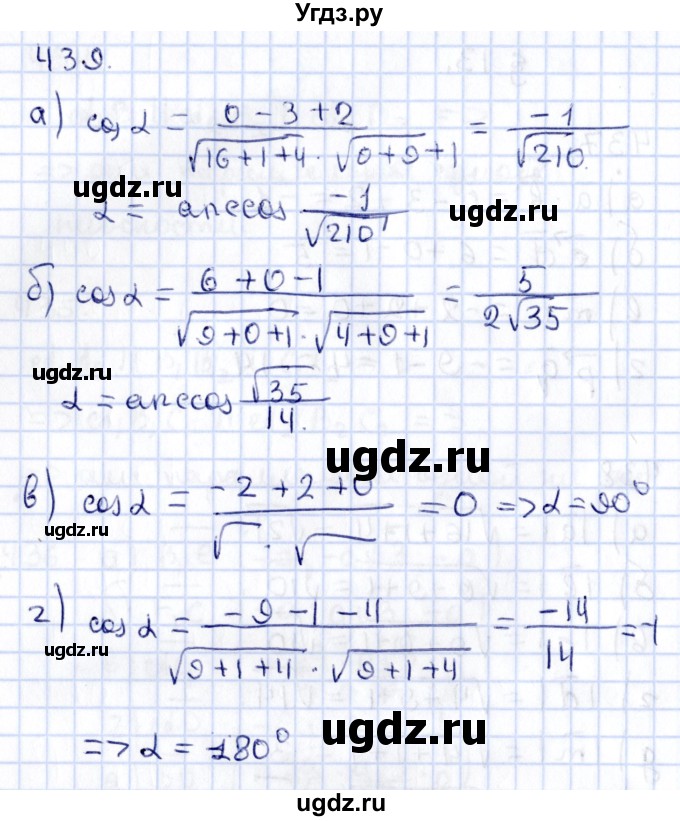 Угдз.ру
439.
а) cos α = (0 - 3 + 2) / (√(16+1+4) · √(0+9)+1) = -1 / √210.
α = arccos -1 / √210
ugdz.ru
ugdz.ru
б) cos α = (6 + 0 - 1) / (√(9+0+1) · √(4+9+1)) = 5 / (2√35)
ugdz.ru
ugdz.ru
α = arccos √35 / 14.
ugdz.ru
в) cos α = (-2 + 2 + 0) / (√ · √) = 0 => α = 90°
ugdz.ru
г) cos α = (-9 - 1 - 4) / (√(9+1+4) · √(9+1+4)) = -14 / 14 = -1
ugdz.ru
=> α = 180°
ugdz.ru
ugdz.ru
ugdz.ru